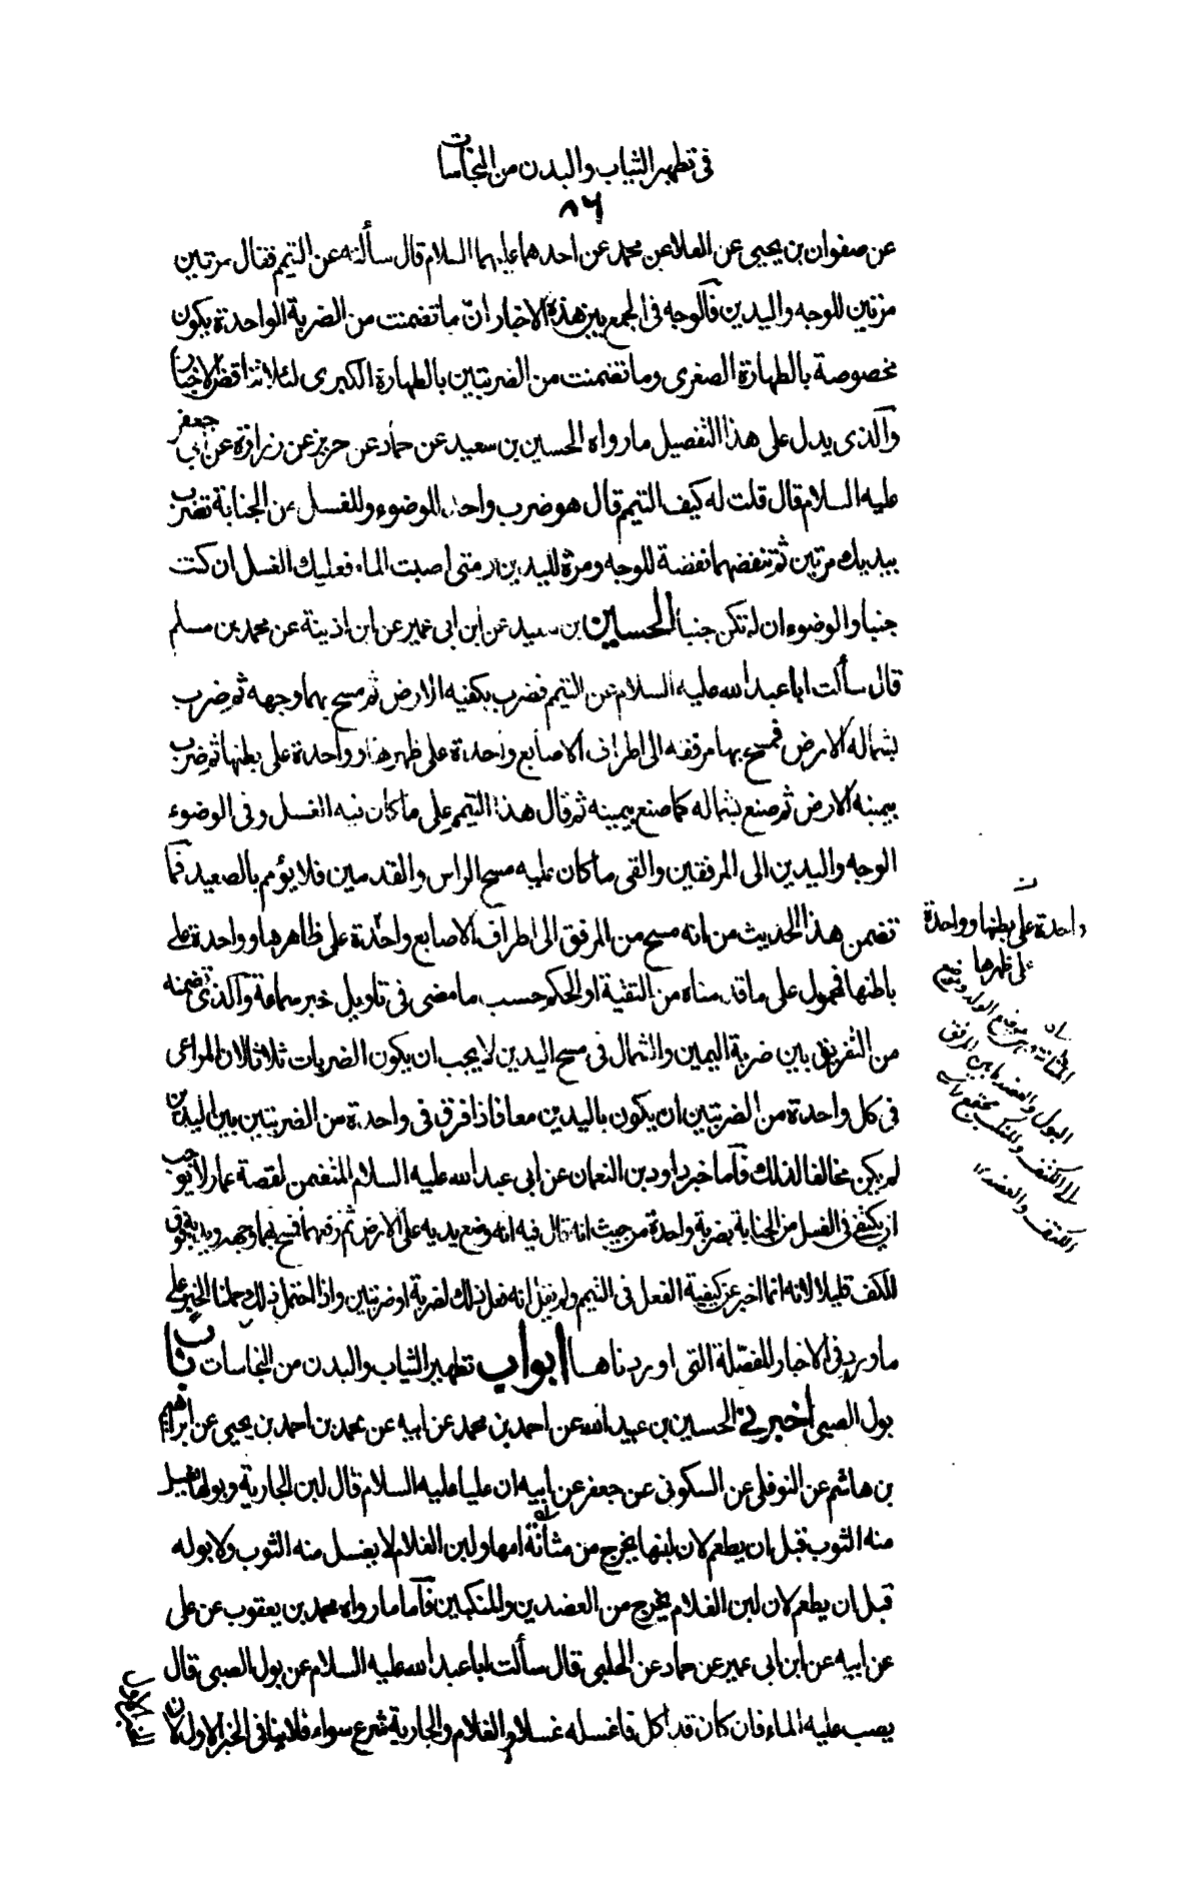 فى تطهير الثياب والبدن من النجاسات
٨٦
عن صفوان بن يحيى عن العلا عن محمد عن احدهما عليهما السلام قال سألته عن التيمم فقال مرتين
مرتين للوجه واليدين فالوجه فى الجمع بين هذه الاخبار ان ما تضمنت من الضربة الواحدة يكون
مخصوصة بالطهارة الصغرى وما تضمنت من الضربتين بالطهارة الكبرى لئلا تتناقض الاخبار
والذى يدل على هذا التفصيل ما رواه الحسين بن سعيد عن حماد عن حريز عن زرارة عن ابى جعفر
عليه السلام قال قلت له كيف التيمم قال هو ضرب واحد للوضوء وللغسل من الجنابة تضرب
بيديك مرتين ثم تنفضهما نفضة للوجه ومرة لليدين ومتى اصبت الماء فعليك الغسل ان كنت
جنبا والوضوء ان لم تكن جنبا الحسين بن سعيد عن ابن ابى عمير عن ابن اذينة عن محمد بن مسلم
قال سألت ابا عبد الله عليه السلام عن التيمم فضرب بكفيه الارض ثم مسح بهما وجهه ثم ضرب
بشماله الارض فمسح بها مرفقه الى اطراف الاصابع واحدة على ظهرها وواحدة على بطنها ثم ضرب
بيمينه الارض ثم صنع بشماله كما صنع بيمينه ثم قال هذا التيمم على ما كان فيه الغسل وفى الوضوء
الوجه واليدين الى المرفقين والقى ما كان عليه مسح الراس والقدمين فلا يؤمم بالصعيد فما
تضمن هذا الحديث من انه مسح من المرفق الى اطراف الاصابع واحدة على ظاهرها وواحدة على
باطنها فمحمول على ما قدمناه من التقية او الحكم حسب ما مضى فى تاويل خبر سماعة والذى تضمنه
من التفريق بين ضربة اليمين والشمال فى مسح اليدين لا يجب ان يكون الضربات ثلاثا لان المراعى
فى كل واحدة من الضربتين ان يكون باليدين معا فاذا فرق فى واحدة من الضربتين بين اليدين
لم يكن مخالفا لذلك فاما خبر داود بن النعمان عن ابى عبد الله عليه السلام المتضمن لقصة عمار لا يوجب
ان يكتفى فى الغسل من الجنابة بضربة واحدة من حيث انه قال فيه انه وضع يديه على الارض ثم رفعهما فمسح بهما وجهه ويديه فوق
الكف قليلا لانه انما اخبر عن كيفية الفعل فى التيمم ولم يقل انه فعل ذلك لضربة او ضربتين واذا احتمل ذلك حملنا الخبر على
ما ورد فى الاخبار المفصلة التى اوردناها ابواب تطهير الثياب والبدن من النجاسات باب
بول الصبى اخبرنى الحسين بن عبيد الله عن احمد بن محمد عن ابيه عن محمد بن احمد بن يحيى عن ابراهيم
بن هاشم عن النوفلى عن السكونى عن جعفر عن ابيه ان عليا عليه السلام قال لبن الجارية وبولها يغسل
منه الثوب قبل ان يطعم لان لبنها يخرج من مثانة امها ولبن الغلام لا يغسل منه الثوب ولا بوله
قبل ان يطعم لان لبن الغلام يخرج من العضدين والمنكبين فاما ما رواه محمد بن يعقوب عن على
عن ابيه عن ابن ابى عمير عن حماد عن الحلبى قال سألت ابا عبد الله عليه السلام عن بول الصبى قال
يصب عليه الماء فان كان قد اكل فاغسله غسلا والغلام والجارية شرع سواء فلا ينافى الخبر الاول لان
واحدة على بطنها وواحدة
على ظهرها
المثانة موضع الولد وموضع
البول والعضد ما بين المرفق
الى الكتف والمنكب مجتمع راس
الكتف والعضد